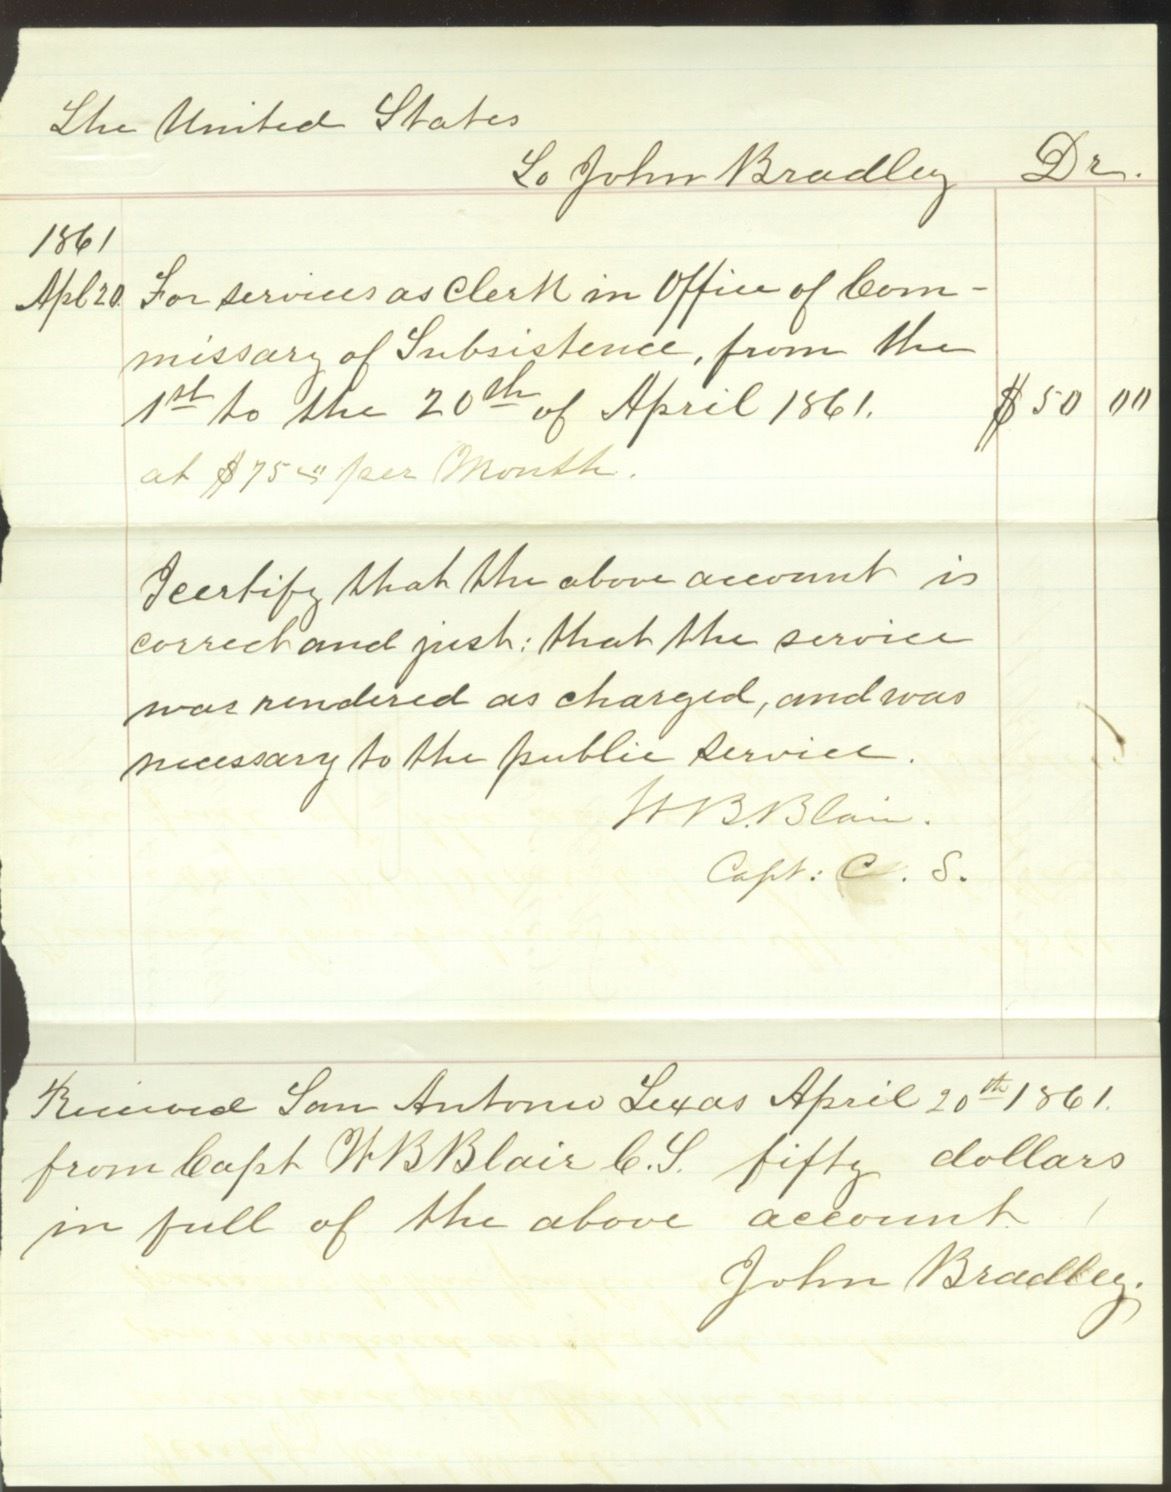 The United States
To John Bradley Dr.
1861
Apl 20 For services as Clerk in Office of Com-
missary of Subsistence, from the
1st to the 20th of April 1861. $50 00
at $75 per Month.
I certify that the above account is
correct and just: that the service
was rendered as charged, and was
necessary to the public service.
W B. Blair.
Capt: C. S.
Received San Antonio Texas April 20th 1861.
from Capt W B Blair C.S. fifty dollars
in full of the above account
John Bradley.